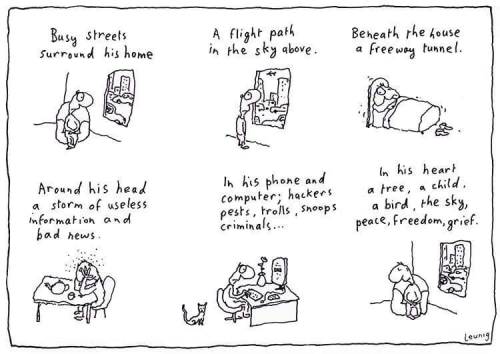 Busy streets
surround his home
A flight path
in the sky above.
Beneath the house
a freeway tunnel.
Around his head
a storm of useless
information and
bad news.
In his phone and
computer; hackers
pests, trolls, snoops
criminals...
In his heart
a tree, a child,
a bird, the sky,
peace, freedom, grief.
Leunig